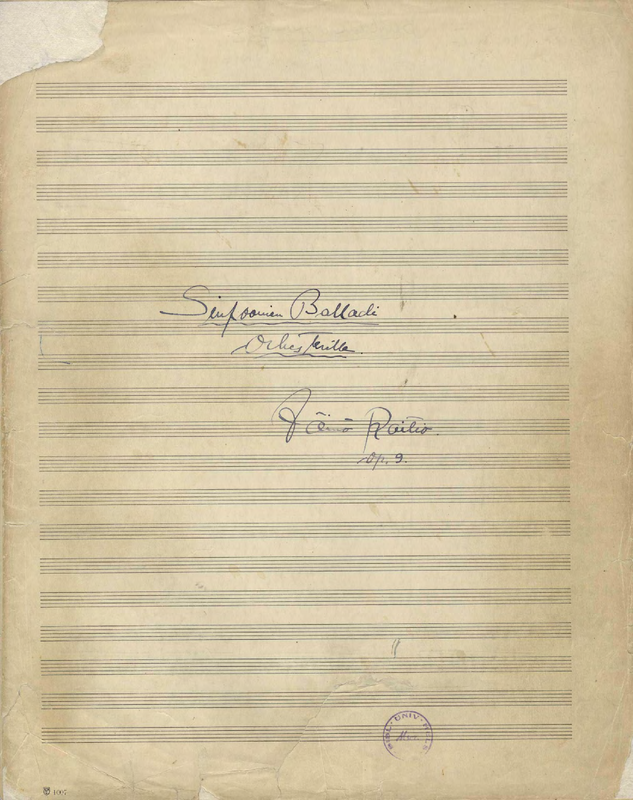 Sinfooninen Balladi
Orkesterille.
Väinö Raitio.
Op. 9.
BIBL. UNIV. HELS.
1007